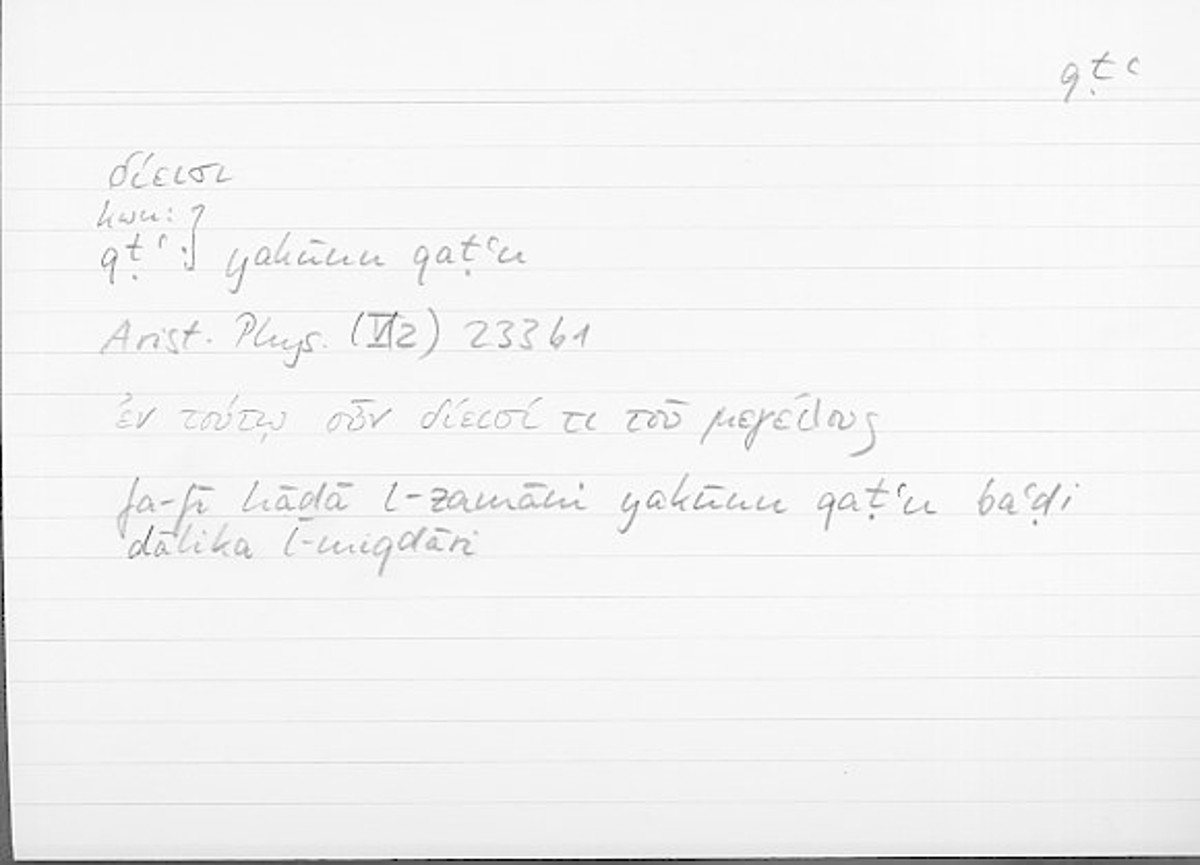 qṭʿ
δίεισι
kwn:
qṭʿ:] yakūnu qaṭʿu
Arist. Phys. (VI2) 233b1
ἐν τούτῳ οὖν δίεισί τι τοῦ μεγέθους
fa-fī hāḏā l-zamāni yakūnu qaṭʿu baʿḍi
ḏālika l-miqdāri